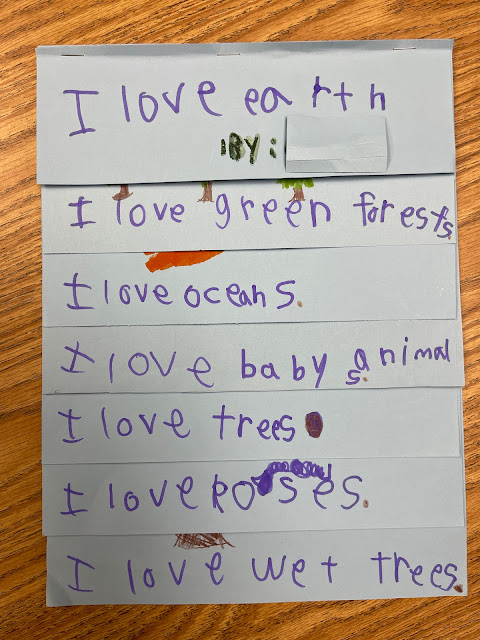 I love earth
BY:
I love green forests.
I love oceans.
I love baby animals.
I love trees.
I love roses.
I love wet trees.